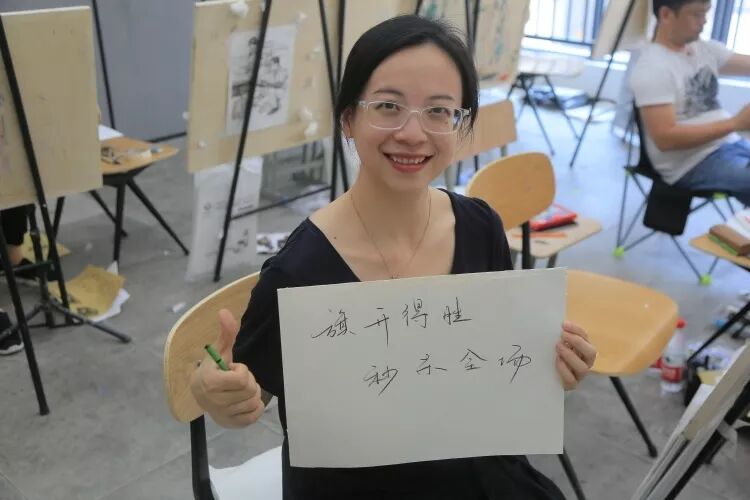 旗开得胜
秒杀全场